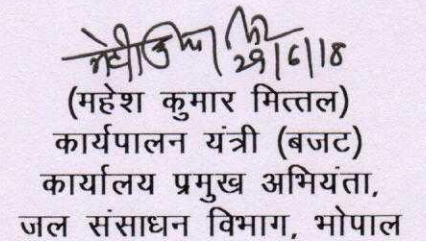 29/6/18
(महेश कुमार मित्तल)
कार्यपालन यंत्री (बजट)
कार्यालय प्रमुख अभियंता,
जल संसाधन विभाग, भोपाल